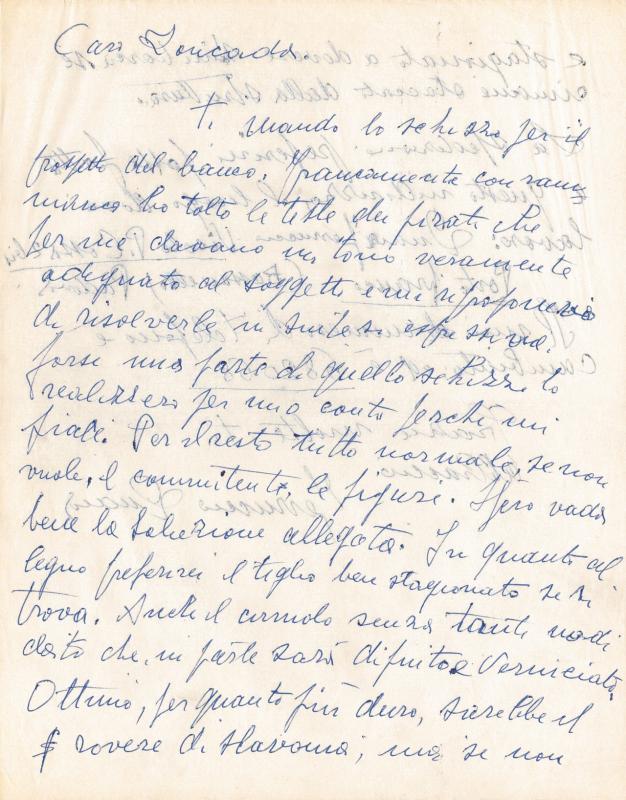 Caro Zoncadda.
Ti mando lo schizzo per il
progetto del banco. Francamente con ram-
marico ho tolto le teste dei pirati che
per me davano un tono veramente
adeguato al soggetto e mi riproponevo
di risolverle in sintesi espressiva.
forse una parte di quello schizzo lo
realizzerò per mio conto perchè mi
piace. Per il resto tutto normale, se non
vuole, il committente, le figure. Spero vada
bene la soluzione allegata. In quanto al
legno preferirei il tiglio ben stagionato se si
trova. Anche il cirmolo senza tanti nodi
dato che, in parte sarà dipinto e verniciato.
Ottimo, per quanto più duro, sarebbe il
rovere di slavonia, ma se non